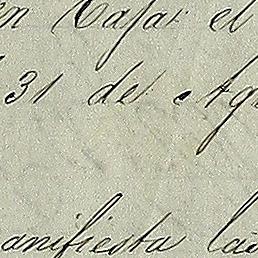 en Casa: el
31 de Ag
anifiesta la